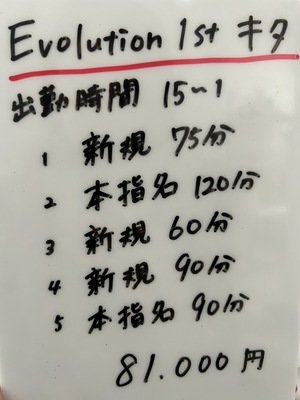 Evolution 1st キタ
出勤時間 15〜1
1 新規 75分
2 本指名 120分
3 新規 60分
4 新規 90分
5 本指名 90分
81.000円